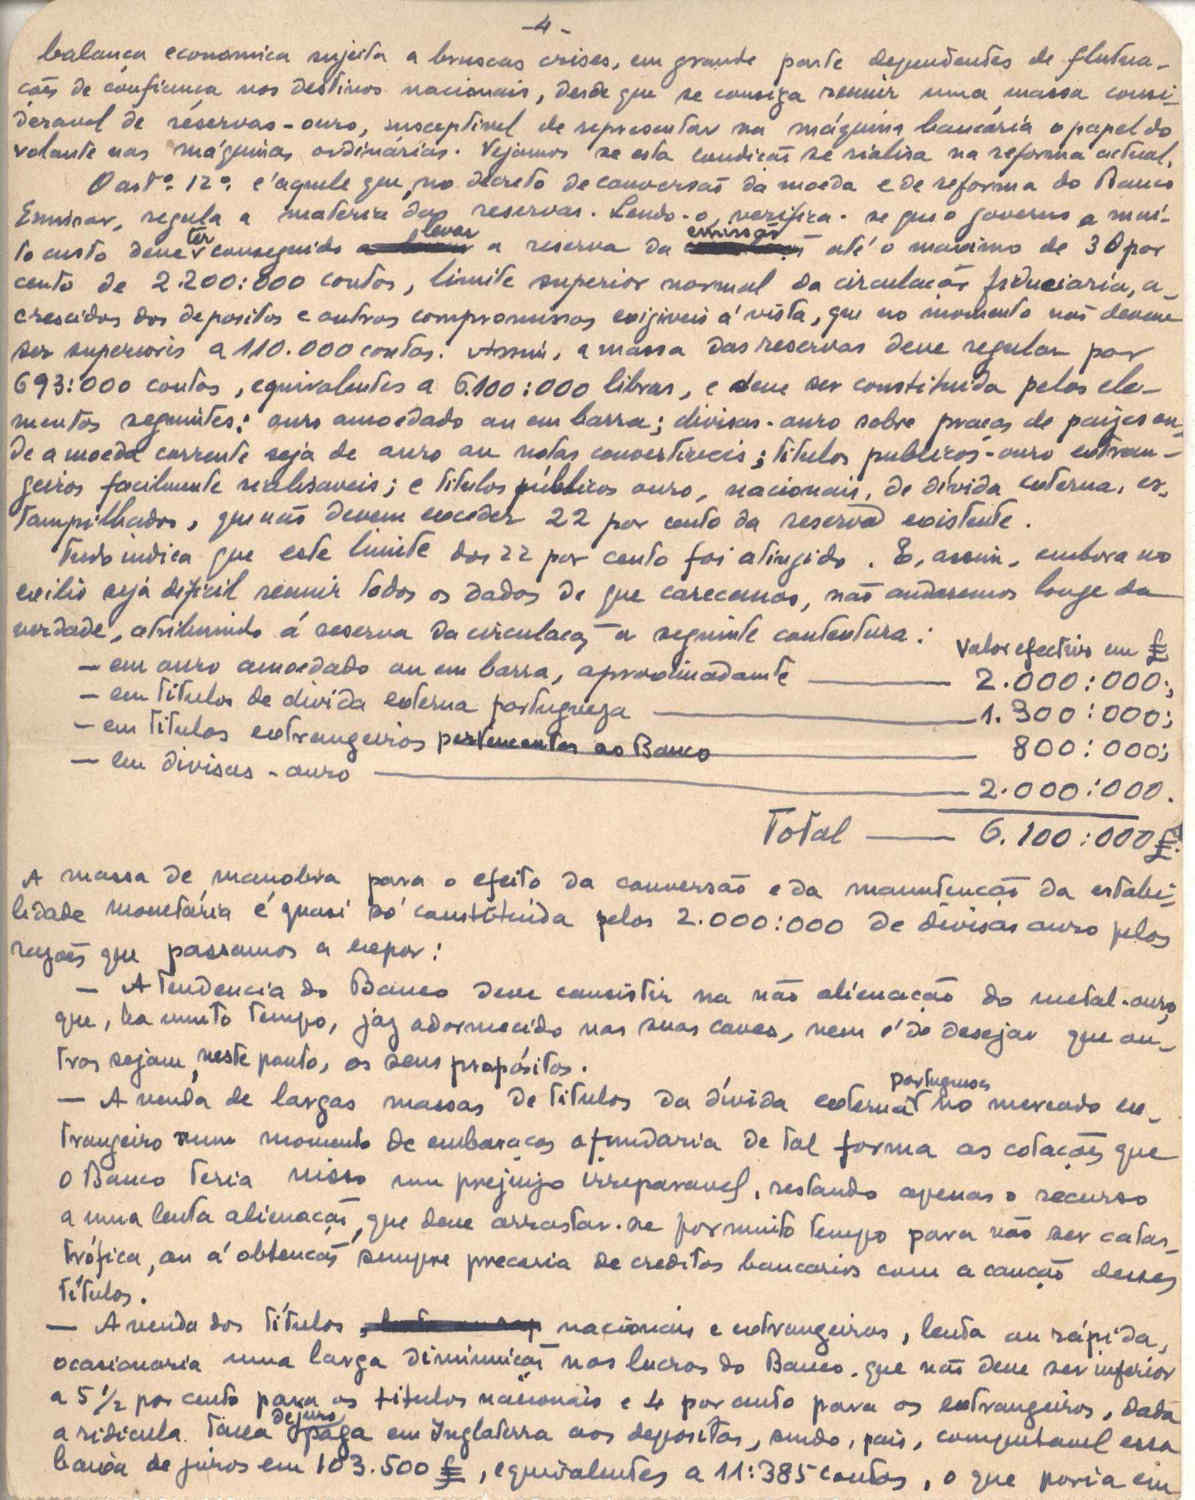 -4-
balança economica sujeita a bruscas crises, em grande parte dependentes de flutua-
ções de confiança nos destinos nacionais, desde que se consiga reunir uma massa consi-
deravel de résérvas-ouro, susceptivel de representar na máquina bancária o papel do
volante nas máquinas ordinárias. Vejamos se esta condição se rialisa na reforma actual.
O artº. 12º. é aquele que, no decreto de conversão da moeda e de reforma do Banco
Emissor, regula a materia das reservas. Lendo-o, verifica-se que o governo a mui-
to custo deve ter conseguido elevar a reserva da emissão até o maximo de 30 por
cento de 2.200:000 contos, limite superior normal da circulação fiduciaria, a-
crescidos dos depositos e outros compromissos exigiveis á vista, que no momento não devem
ser superiores a 110.000 contos. Assim, a massa das reservas deve regular por
693:000 contos, equivalentes a 6.100:000 libras, e deve ser constituida pelos ele-
mentos seguintes: ouro amoedado ou em barra; divisas-ouro sobre praças de paizes on-
de a moeda corrente seja de ouro ou notas convertiveis; titulos publicos-ouro extran-
geiros facilmente realisaveis; e titulos públicos ouro, nacionais, de dívida externa, es-
tampilhados, que não devem exceder 22 por cento da reserva existente.
Tudo indica que este limite dos 22 por cento foi atingido. E, assim, embora no
exilio seja dificil reunir todos os dados de que carecemos, não andaremos longe da
verdade, atribuindo á reserva da circulação a seguinte contextura:
Valor efectivo em £
- em ouro amoedado ou em barra, aproximadamente — 2.000:000;
- em titulos de divida externa portugueza — 1.300:000;
- em titulos extrangeiros pertencentes ao Banco — 800:000;
- em divisas-ouro — 2.000:000.
Total — 6.100:000 £.
A massa de manobra para o efeito da conversão e da manutenção da estabi-
lidade monetária é quasi só constituida pelos 2.000:000 de divisas ouro pelas
razões que passamos a expor:
- A tendencia do Banco deve consistir na não alienação do metal-ouro,
que, ha muito tempo, jaz adormecido nas suas caves, nem é de desejar que ou-
tros sejam, neste ponto, os seus propósitos.
- A venda de largas massas de titulos da dívida externa portugueses no mercado ex-
trangeiro num momento de embaraços afundaria de tal forma as cotações que
o Banco teria nisso um prejuizo irreparavel, restando apenas o recurso
a uma lenta alienação, que deve arrastar-se por muito tempo para não ser catas-
trófica, ou á obtenção sempre precaria de creditos bancarios com a caução desses
títulos.
- A venda dos títulos nacionais e extrangeiros, lenta ou rápida,
ocasionaria uma larga diminuição nos lucros do Banco, que não deve ser inferior
a 5 ½ por cento para os titulos nacionais e 4 por cento para os extrangeiros, dada
a ridicula taxa de juro paga em Inglaterra aos depositos, sendo, pois, computavel essa
baixa de juros em 103.500 £, equivalentes a 11:385 contos, o que poria em